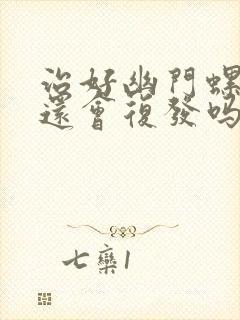 治好幽門螺
還會復發嗎
七欒1